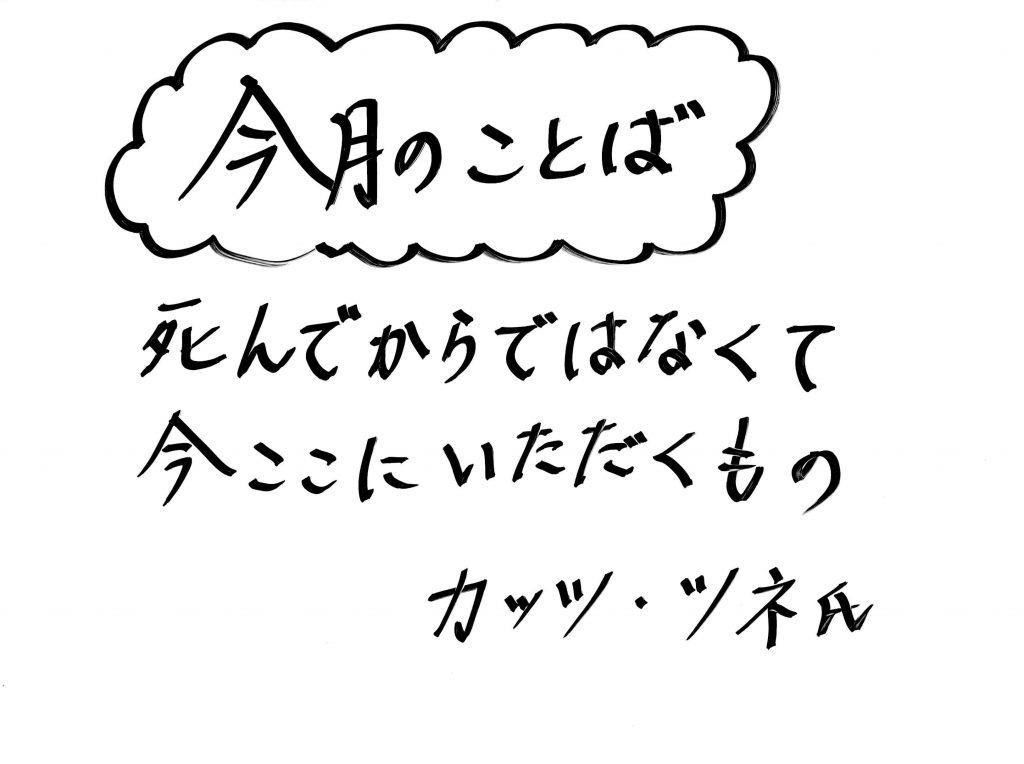 今月のことば
死んでからではなくて
今ここにいただくもの
カッツ・ツネ氏